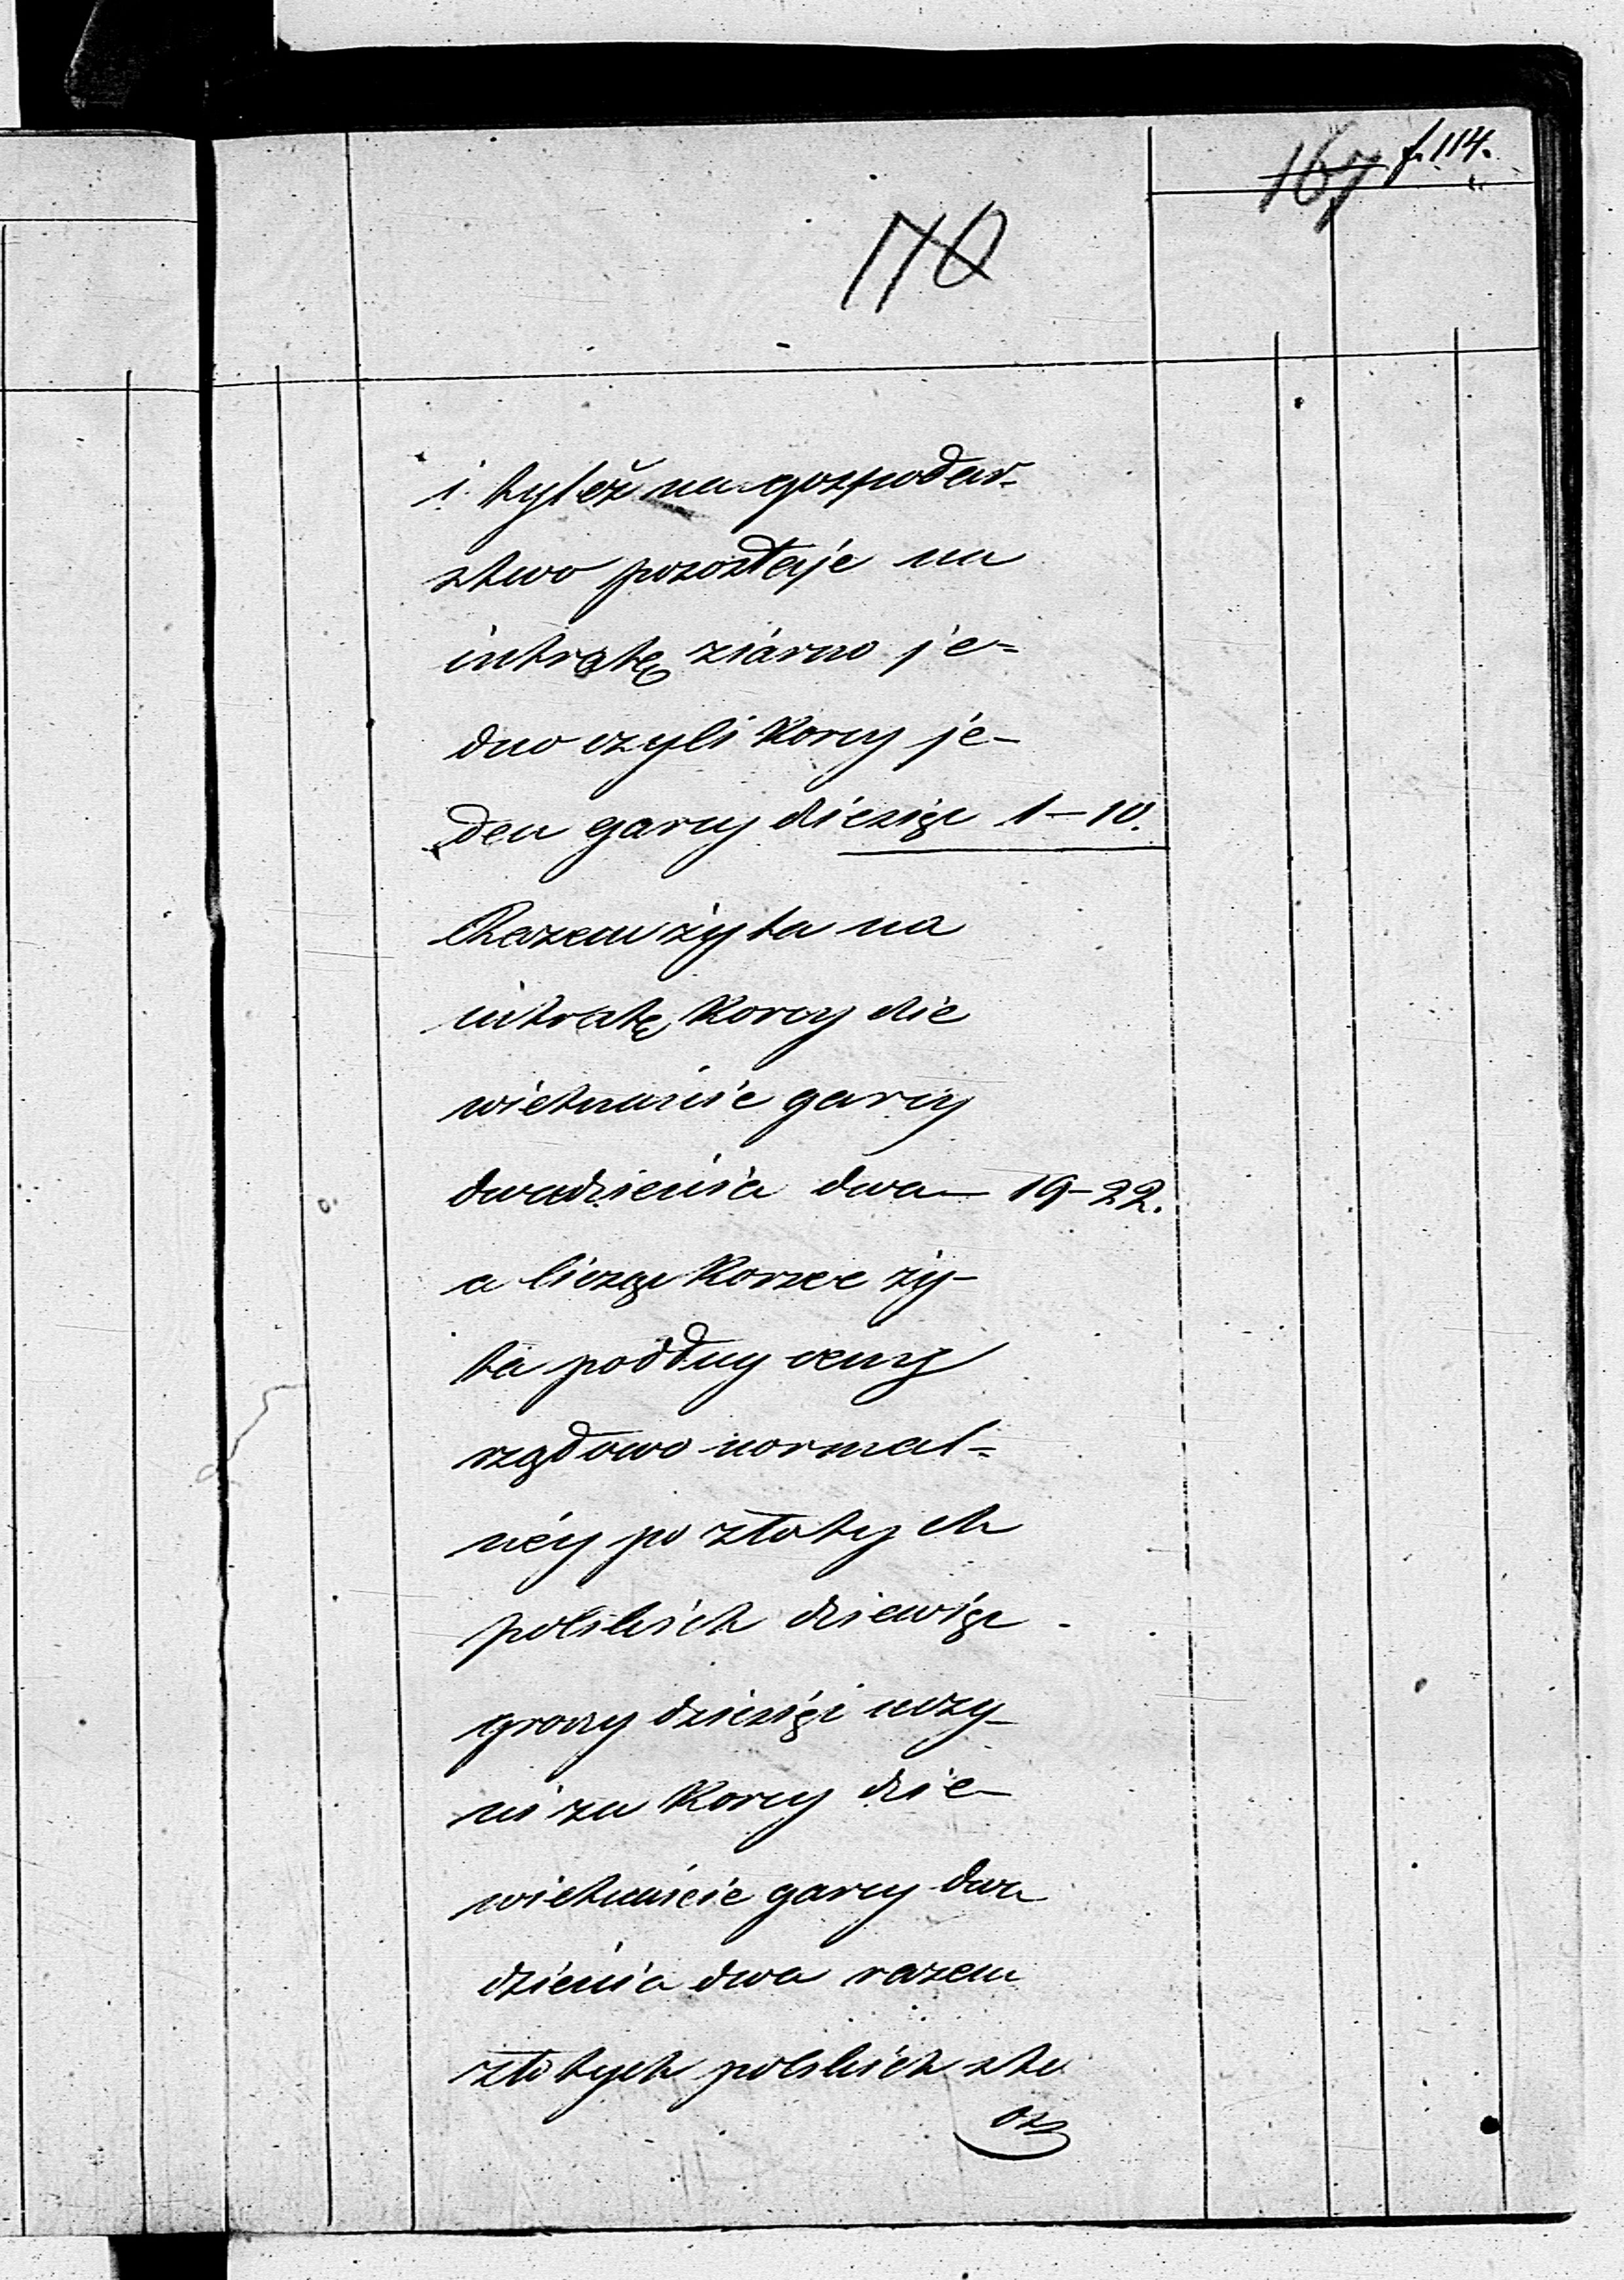 167 f. 114.
170
i tyleż na gospodar-
stwo pozostaje na
intratę ziárno je=
dno czyli korcy je-
den garcy dziesięc 1–10.
Razem żyta na
intratę korcy dzie
wietnaście garcy
dwadzieścia dwa — 19–22.
a licząc korzec ży-
ta podług ceny
rządowo normal=
néy po złotych
polskich dziewięc
groszy dziesięc uczy-
ni za korcy dzie-
wietnaście garcy dwa
dzieścia dwa razem
złotych polskich sto